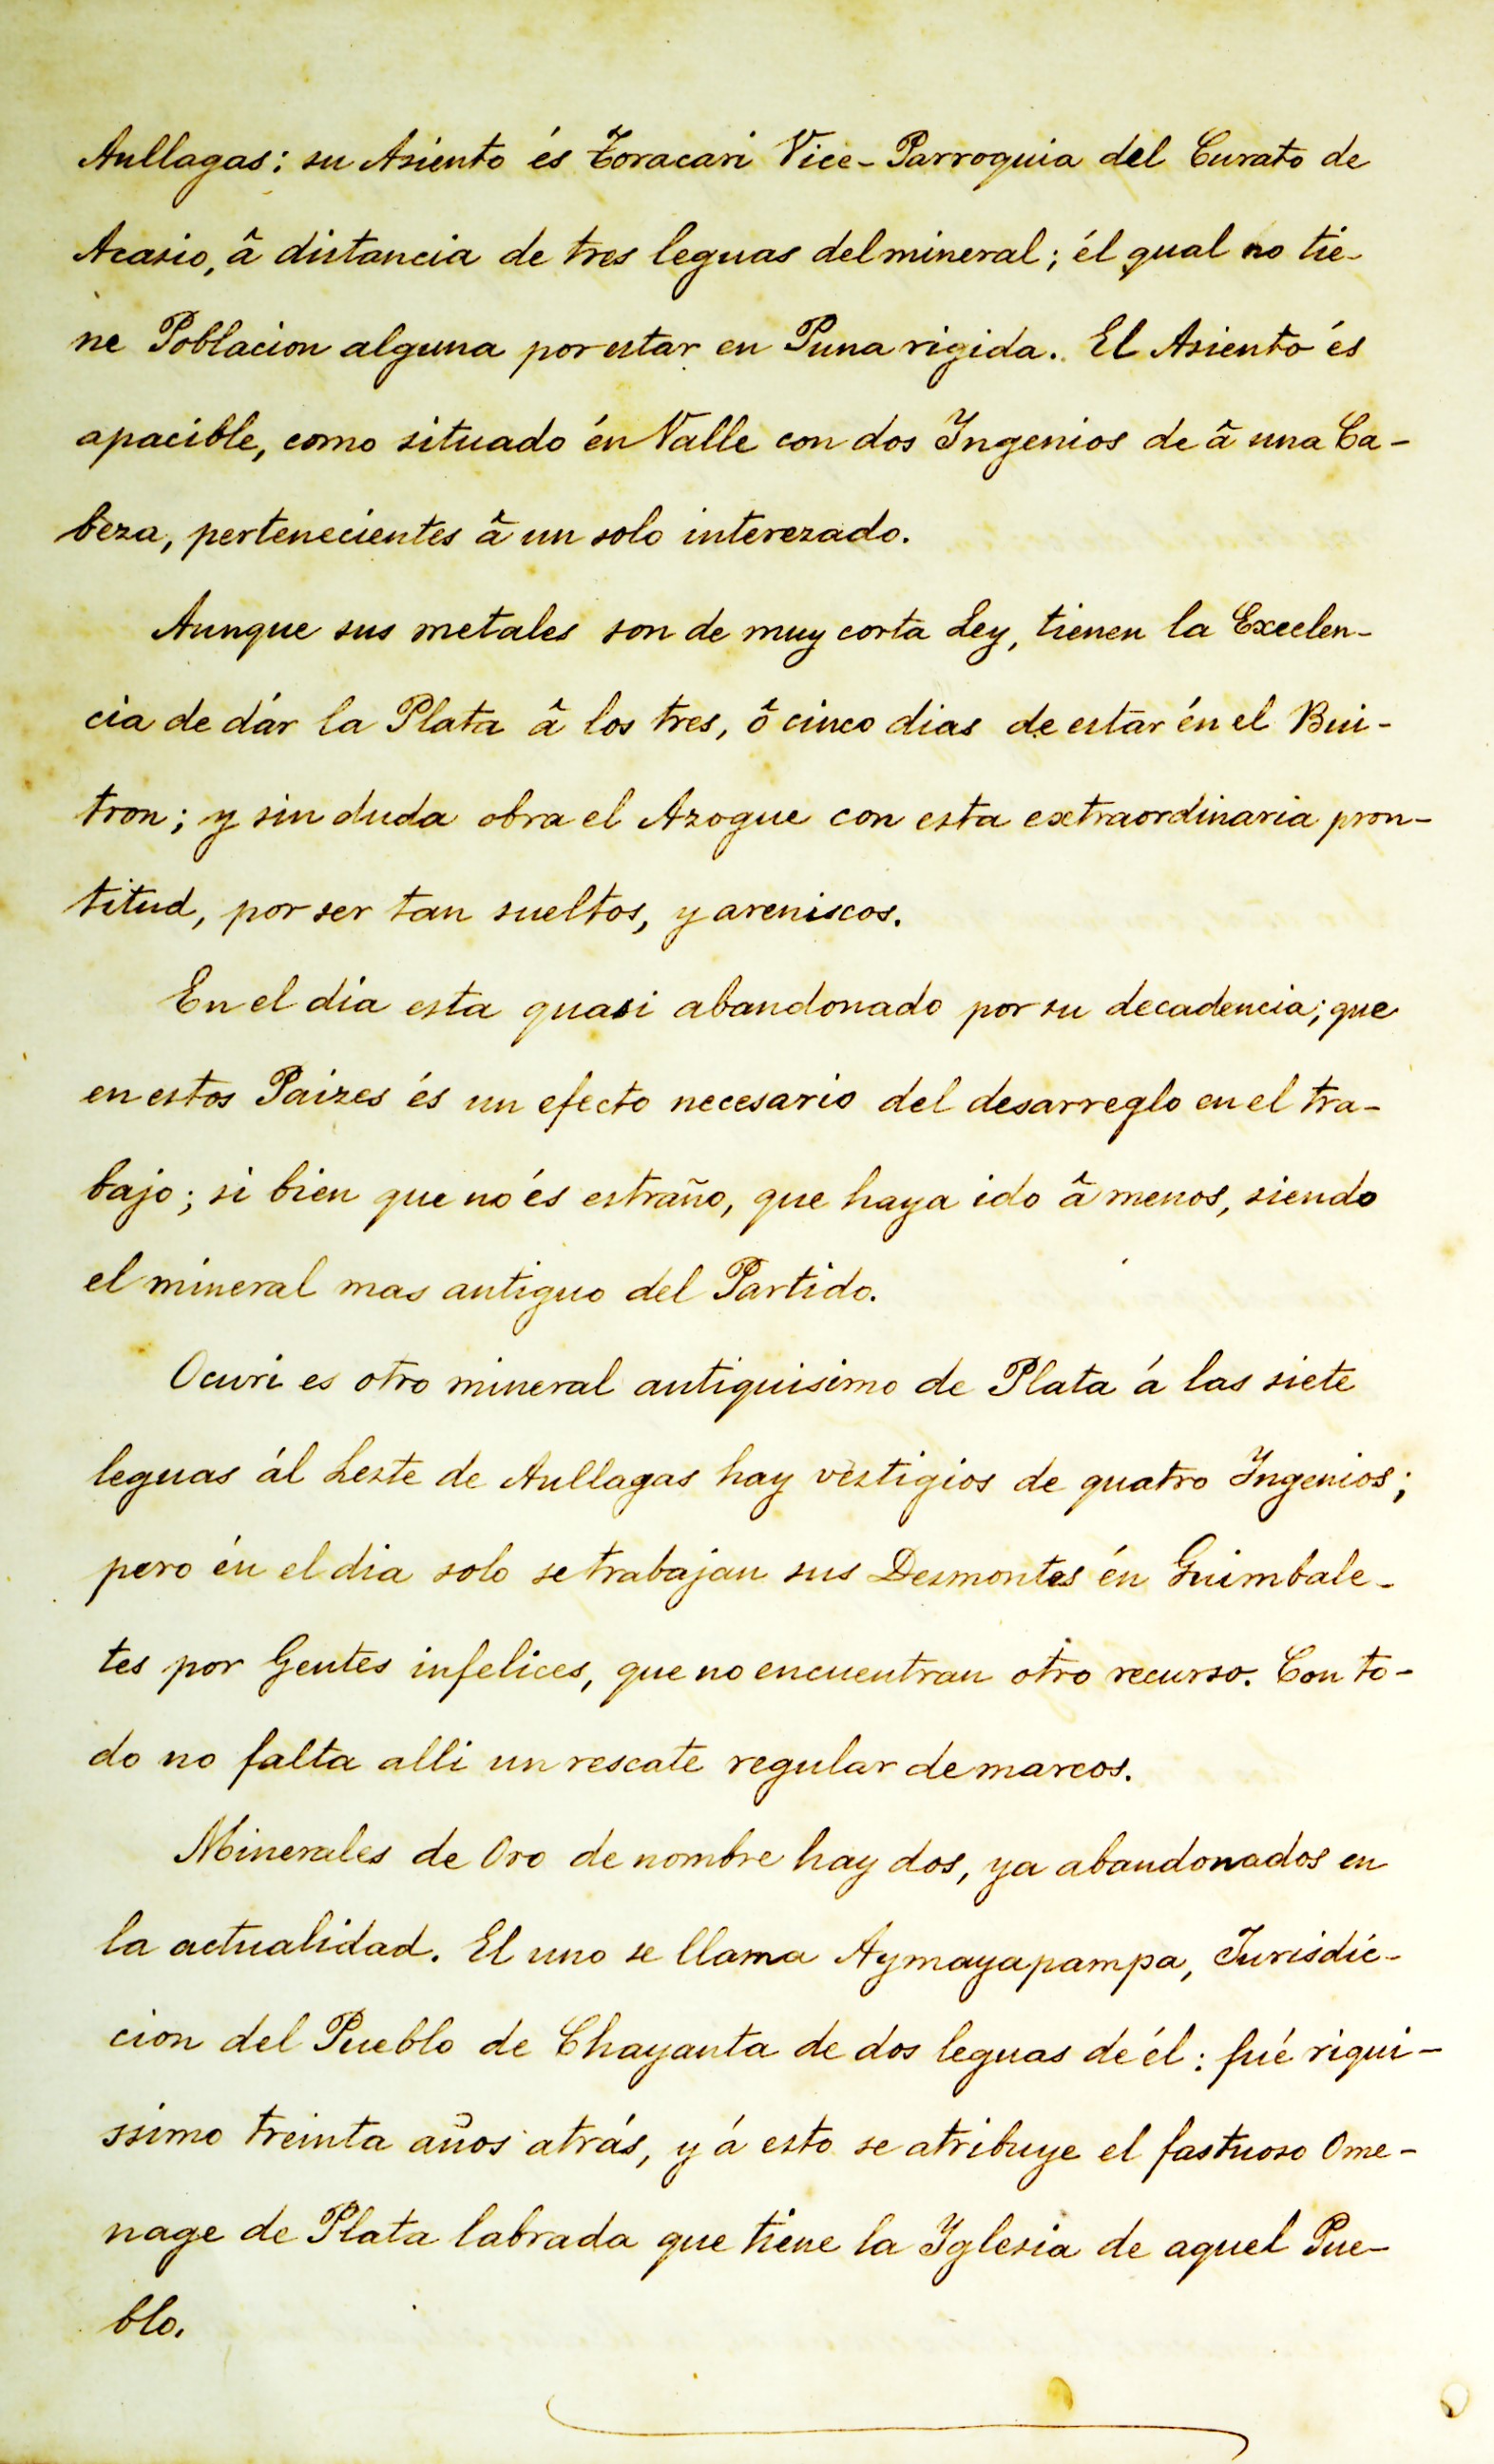 Aullagas: su Asiento és Toracari Vice-Parroquia del Curato de
Acasio, â distancia de tres leguas del mineral; él qual no tie-
ne Poblacion alguna por estar en Puna rigida. El Asiento és
apacible, como situado én Valle con dos Yngenios de â una Ca-
beza, pertenecientes â un solo interezado.
Aunque sus metales son de muy corta Ley, tienen la Excelen-
cia de dár la Plata â los tres, ô cinco dias de estar én el Bui-
tron; y sin duda obra el Azogue con esta extraordinaria pron-
titud, por ser tan sueltos, y areniscos.
En el dia esta quasi abandonado por su decadencia; que
en estos Paizes és un efecto necesario del desarreglo en el tra-
bajo; si bien que no és estraño, que haya ido â menos, siendo
el mineral mas antiguo del Partido.
Ocuri es otro mineral antiquisimo de Plata á las siete
leguas ál Leste de Aullagas hay vestigios de quatro Yngenios;
pero én el dia solo se trabajan sus Desmontes én Guimbale-
tes por Gentes infelices, que no encuentran otro recurso. Con to-
do no falta alli un rescate regular de marcos.
Minerales de Oro de nombre hay dos, ya abandonados en
la actualidad. El uno se llama Aymayapampa, Jurisdic-
cion del Pueblo de Chayanta de dos leguas de él: fué riqui-
ssimo treinta años atrás, y á esto se atribuye el fastuoso Ome-
nage de Plata labrada que tiene la Yglesia de aquel Pue-
blo.